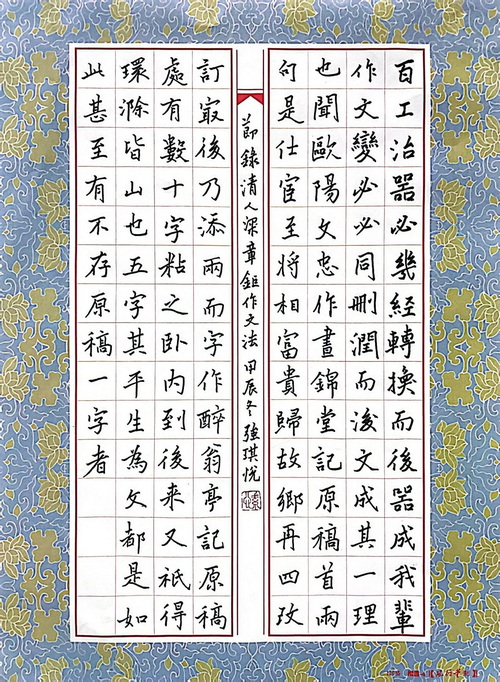 百工治器必幾經轉換而後器成我輩
作文變必必同刪潤而後文成其一理
也聞歐陽文忠作晝錦堂記原稿首兩
句是仕宦至將相富貴歸故鄉再四改
節錄清人梁章鉅作文法 甲辰冬 強琪悅
訂最後乃添兩而字作醉翁亭記原稿
處有數十字粘之臥内到後來又祇得
環滁皆山也五字其平生為文都是如
此甚至有不存原稿一字者